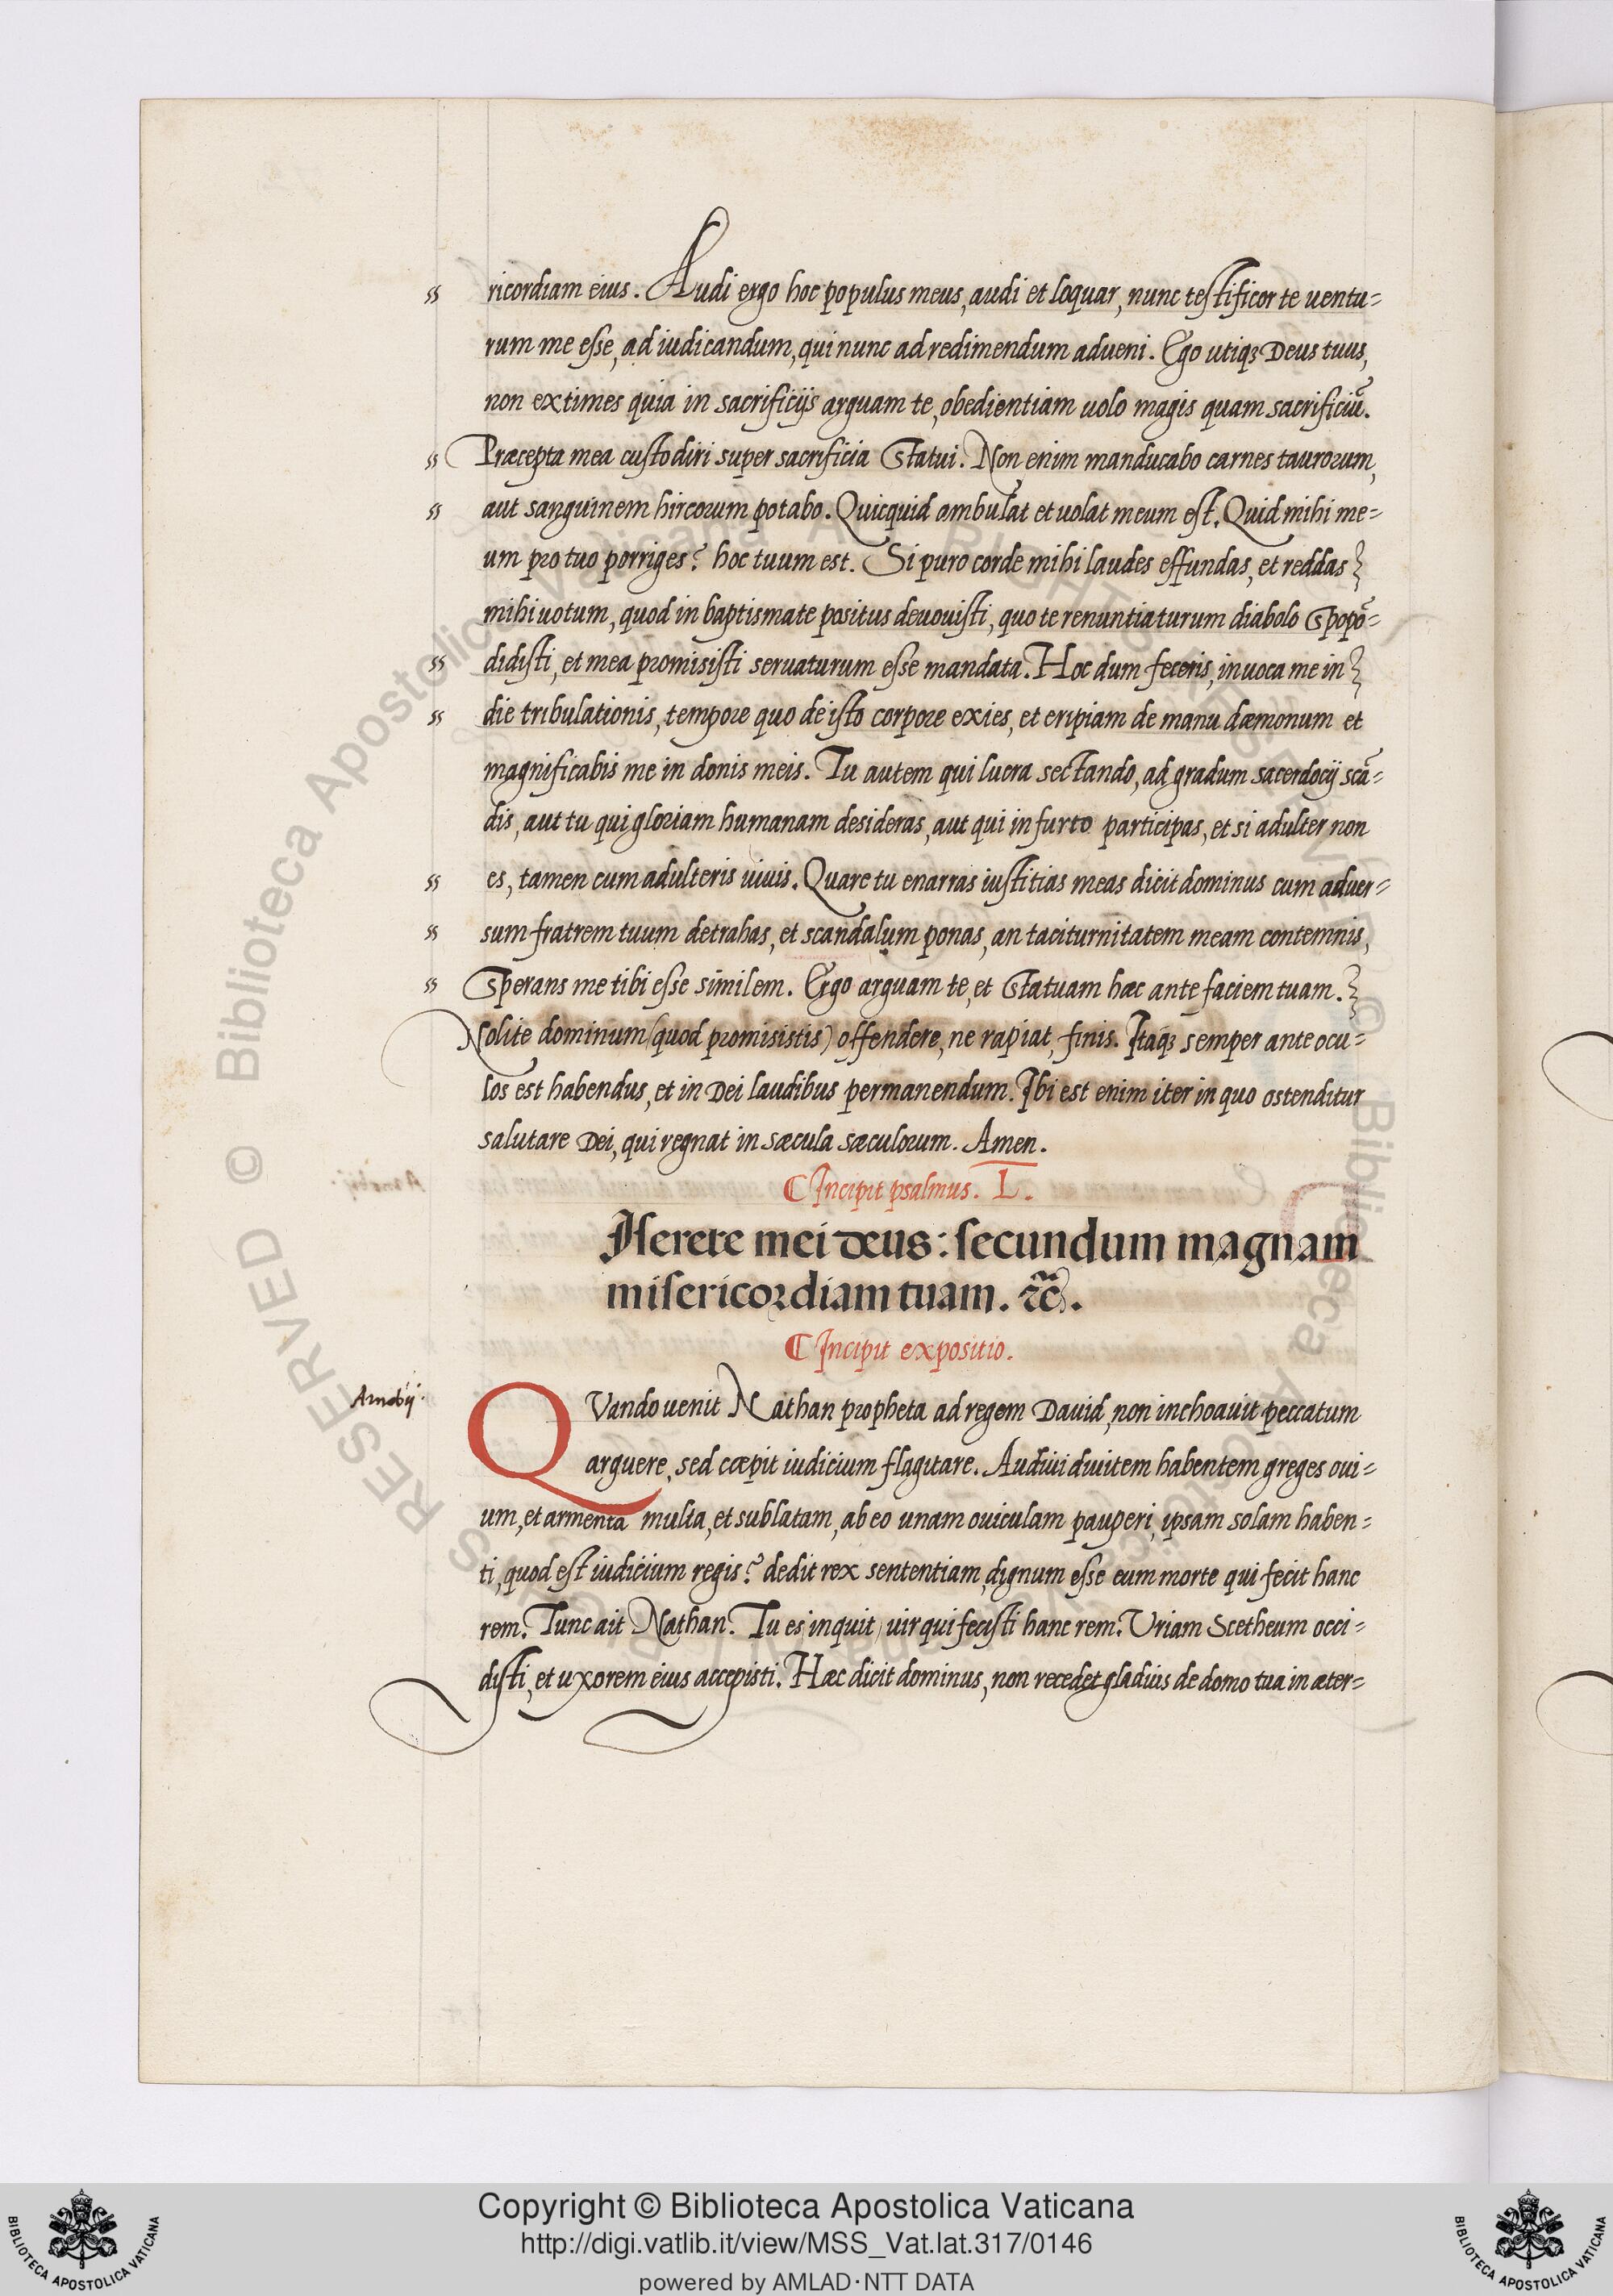 ricordiam eius. Audi ergo hoc populus meus, audi et loquar, nunc testificor te uentu=
rum me esse, ad iudicandum, qui nunc ad redimendum adueni. Ego utiqȝ Deus tuus,
non extimes quia in sacrificijs arguam te, obedientiam uolo magis quam sacrificiū.
Præcepta mea custodiri super sacrificia Statui. Non enim manducabo carnes taurorum,
aut sanguinem hircorum potabo. Quicquid ambulat et uolat meum est. Quid mihi me=
um pro tuo porriges? hoc tuum est. Si puro corde mihi laudes effundas, et reddas
mihi uotum, quod in baptismate positus deuouisti, quo te renuntiaturum diabolo Spopō=
didisti, et mea promisisti seruaturum esse mandata. Hoc dum feceris, inuoca me in
die tribulationis, tempore quo de isto corpore exies, et eripiam de manu dæmonum et
magnificabis me in donis meis. Tu autem qui lucra sectando, ad gradum sacerdocij scā=
dis, aut tu qui gloriam humanam desideras, aut qui in furto participas, et si adulter non
es, tamen cum adulteris uiuis. Quare tu enarras iustitias meas dicit dominus cum aduer=
sum fratrem tuum detrahas, et scandalum ponas, an taciturnitatem meam contemnis,
Sperans me tibi esse similem. Ergo arguam te, et Statuam hæc ante faciem tuam.
Nolite dominum (quod promisistis) offendere, ne rapiat, finis. Itaqȝ semper ante ocu=
los est habendus, et in Dei laudibus permanendum. Ibi est enim iter in quo ostenditur
salutare Dei, qui regnat in sæcula sæculorum. Amen.
Incipit psalmus. L.
Iserere mei deus: secundum magnam
misericordiam tuam. &c̃.
Incipit expositio.
Arnobij.
QVando uenit Nathan propheta ad regem Dauid, non inchoauit peccatum
arguere, sed cœpit iudicium flagitare. Audiui diuitem habentem greges oui=
um, et armenta multa, et sublatam, ab eo unam ouiculam pauperi, ipsam solam haben=
ti, quod est iudicium regis? dedit rex sententiam, dignum esse eum morte qui fecit hanc
rem. Tunc ait Nathan. Tu es, inquit, uir qui fecisti hanc rem. Vriam Scetheum occi=
disti, et uxorem eius accepisti. Hæc dicit dominus, non recedet gladius de domo tua in æter=
© Biblioteca Apostolica Vaticana
Copyright © Biblioteca Apostolica Vaticana
http://digi.vatlib.it/view/MSS_Vat.lat.317/0146
powered by AMLAD·NTT DATA
BIBLIOTECA APOSTOLICA VATICANA
BIBLIOTECA APOSTOLICA VATICANA